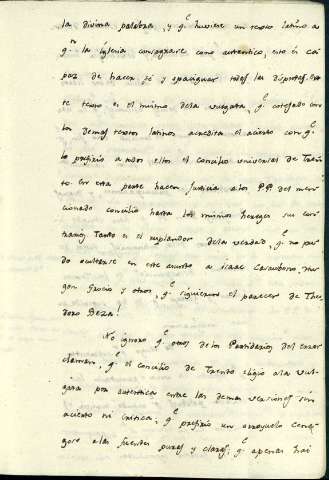 la divina palabra, y q.e huviese un texto latino a
q.n la Iglesia consagrase como autentico, esto es ca
paz de hacer fe y apaciguar todas las disputas. Es
te texto es el mismo dela vulgata, q.e cotejado con
los demas textos latinos acredita el acierto con q.e
lo prefirio a todos ellos el concilio universal de Tren
to. En esta parte hacen justicia alos P.P. del men
cionado concilio hasta los mismos hereges sus con
trarios. Tanto es el resplandor dela verdad, q.e no pu
do ocultarse en este asunto a Isaac Casaubono, Hu
gon Grocio y otros, q.e siguieron el parecer de Theo
doro Beza!
No ignoro q.e otros de los Partidarios del error
claman, q.e el concilio de Trento eligio ala vul
gata por autentica entre las demas versiones sin
acierto ni critica, q.e prefirio un arroyuelo cena
goso alas fuentes puras y claras, q.e apenas hai